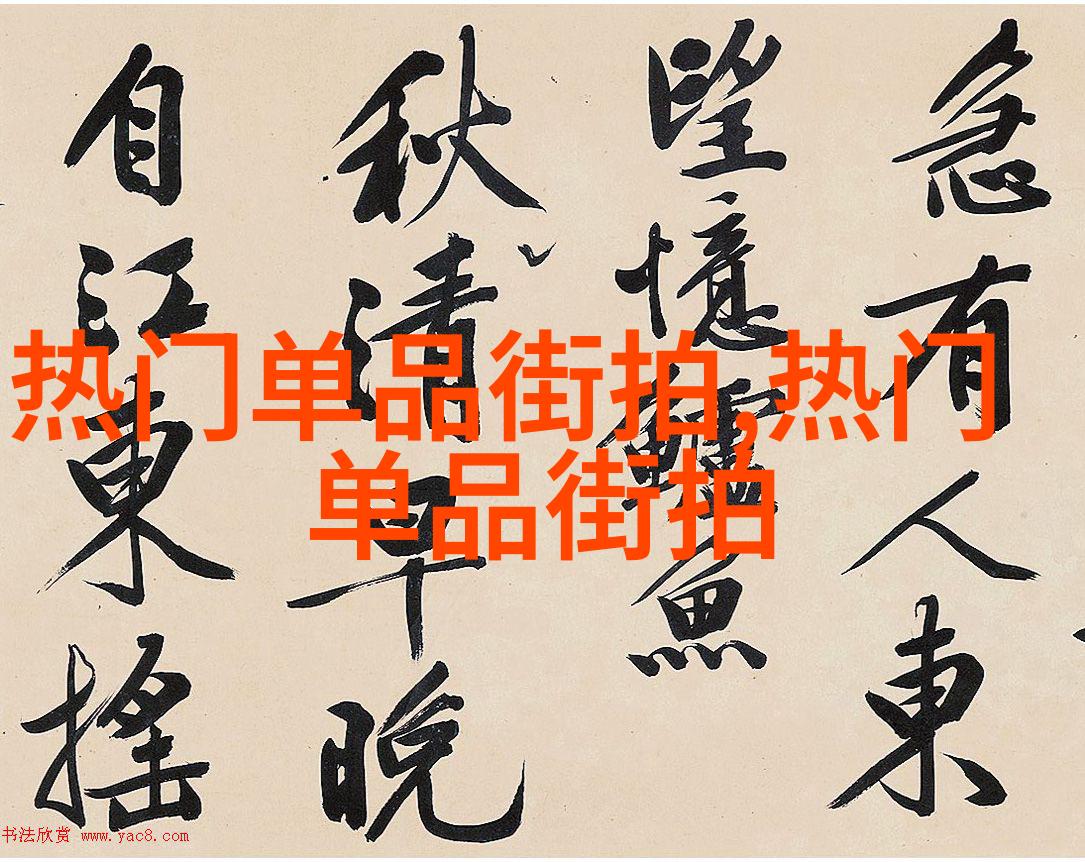 急有人東
望憶鱸魚
秋清早晚
自江東搖
热门单品街拍,热门
单品街拍
书法欣赏 www.yac8.com